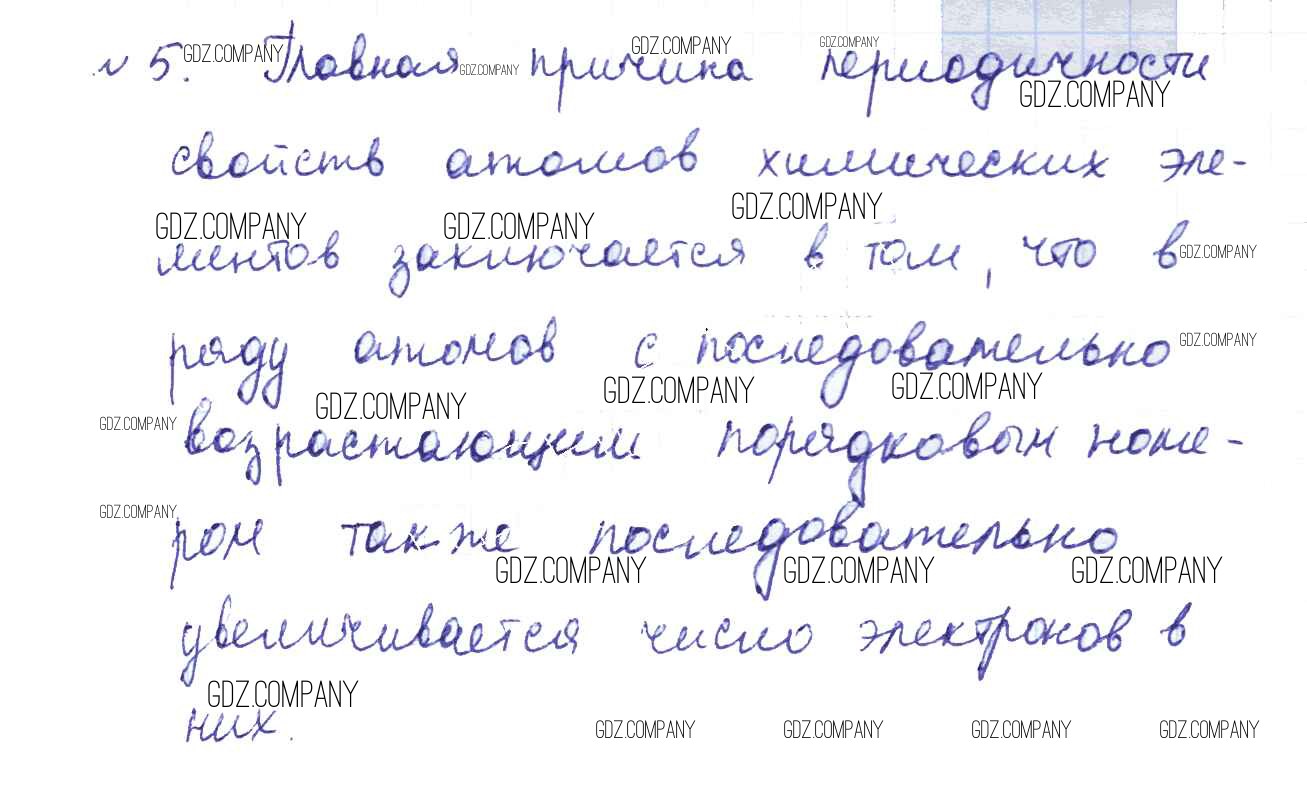 № 5. Главная причина периодичности
свойств атомов химических эле-
ментов заключается в том, что в
ряду атомов с последовательно
возрастающим порядковым номе-
ром также последовательно
увеличивается число электронов в
них.
GDZ.COMPANY GDZ.COMPANY GDZ.COMPANY GDZ.COMPANY
GDZ.COMPANY
GDZ.COMPANY GDZ.COMPANY GDZ.COMPANY
GDZ.COMPANY
GDZ.COMPANY
GDZ.COMPANY GDZ.COMPANY GDZ.COMPANY
GDZ.COMPANY
GDZ.COMPANY
GDZ.COMPANY GDZ.COMPANY GDZ.COMPANY
GDZ.COMPANY
GDZ.COMPANY GDZ.COMPANY GDZ.COMPANY GDZ.COMPANY